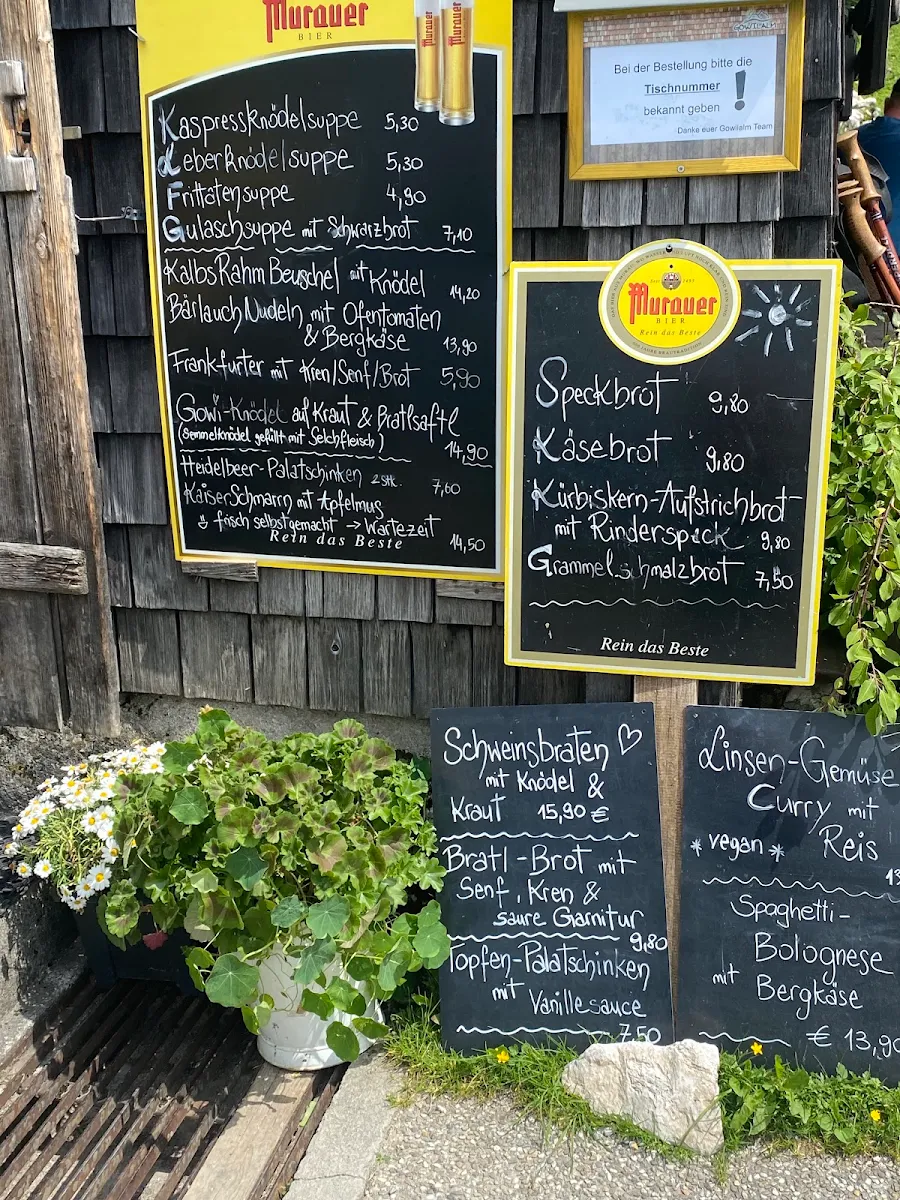 Murauer
BIER
Murauer
Murauer
Kaspressknödelsuppe 5,30
Leberknödelsuppe 5,30
Frittatensuppe 4,90
Gulaschsuppe mit Schwarzbrot 7,10
KalbsRahm Beuschel mit Knödel 14,20
Bärlauch Nudeln mit Ofentomaten
& Bergkäse 13,90
Frankfurter mit Kren/Senf/Brot 5,90
Gowi-Knödel auf Kraut & Bratlsaftl
(Semmelknödel gefüllt mit Selchfleisch) 14,90
Heidelbeer-Palatschinken 2 Stk. 7,60
KaiserSchmarrn mit Apfelmus
frisch selbstgemacht → Wartezeit
Rein das Beste 14,50
GOWILALM
Bei der Bestellung bitte die
Tischnummer
bekannt geben !
Danke euer Gowilalm Team
Murauer
BIER
Rein das Beste
Speckbrot 9,80
Käsebrot 9,80
Kürbiskern-Aufstrichbrot
mit Rinderspeck 9,80
Grammelschmalzbrot 7,50
Rein das Beste
Schweinsbraten
mit Knödel &
Kraut 15,90 €
Bratl-Brot mit
Senf, Kren &
saure Garnitur
9,80
Topfen-Palatschinken
mit Vanillesauce
7,50
Linsen-Gemüse
Curry mit
* vegan * Reis
13
Spaghetti-
Bolognese
mit Bergkäse
€ 13,90